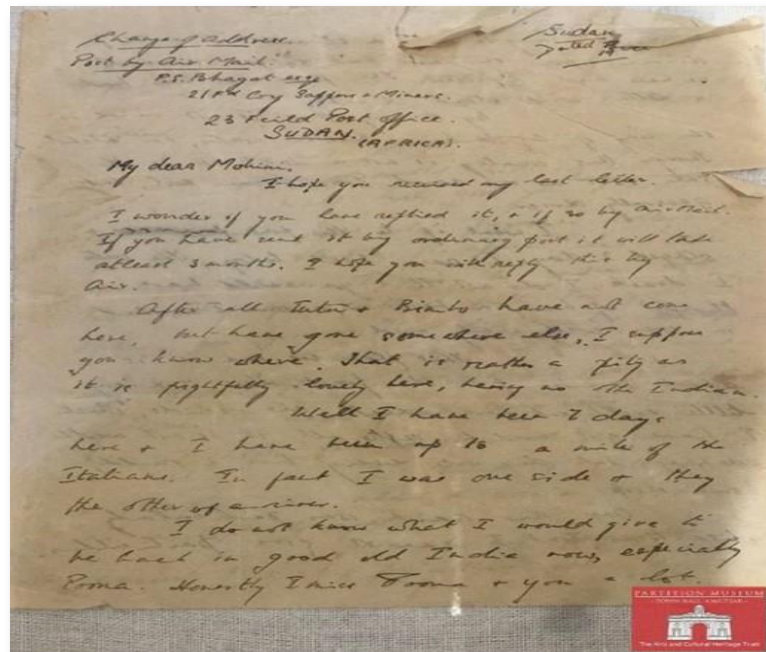 Change of address.
Post by Air Mail.
Sudan
P.S. Bhagat esqr
21 Fd Coy Sappers & Miners.
23 Feild Post Office.
SUDAN.
(AFRICA).
My dear Mohini.
I hope you received my last letter.
I wonder if you have replied it, & if so by air mail.
If you have sent it by ordinary post it will take
atleast 3 months. I hope you will reply this by
Air.
After all Tutu & Bimbo have not come
here, but have gone somewhere else, I suppose
you know where. That is rather a pity as
it is frightfully lonely here, being no other Indian.
Well I have been 7 days
here & I have been up to a mile of the
Italians. In fact I was one side & they
the other of a river.
I do not know what I would give to
be back in good old India now, especially
Poona. Honestly I miss Poona & you a lot
PARTITION MUSEUM
TOWN HALL, AMRITSAR
The Arts and Cultural Heritage Trust